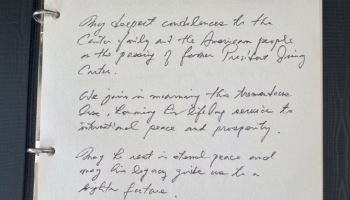 My deepest condolences to the
Carter family and the American people
on the passing of former President Jimmy
Carter.
We join in mourning this tremendous
loss, honoring his lifelong service to
international peace and prosperity.
May he rest in eternal peace and
may his legacy guide us to a
brighter future.